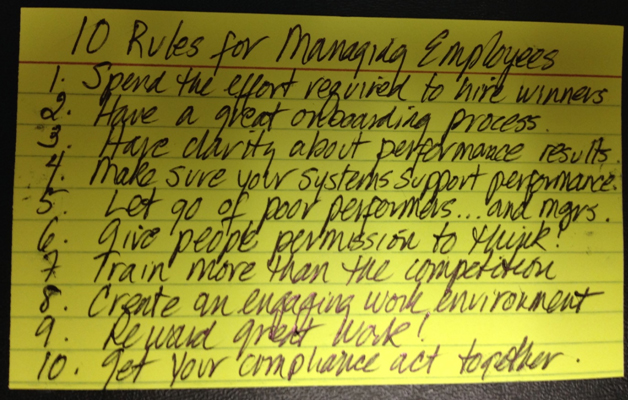 10 Rules for Managing Employees
1. Spend the effort required to hire winners
2. Have a great onboarding process.
3. Have clarity about performance results.
4. Make sure your systems support performance.
5. Let go of poor performers... and mgrs.
6. Give people permission to think!
7. Train more than the competition
8. Create an engaging work environment
9. Reward great work!
10. Get your compliance act together.